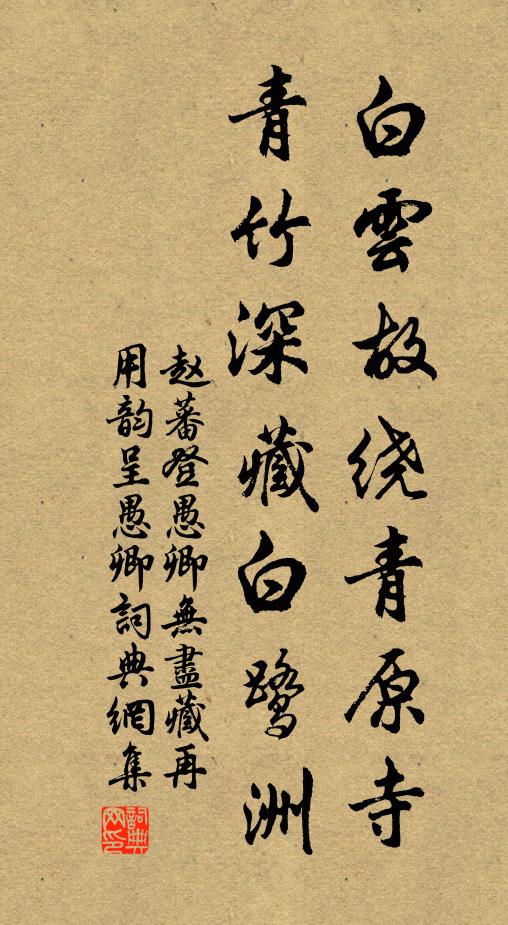 白雲故绕青原寺
青竹深藏白鹭洲
赵蕃登愚卿無盡藏再
用韵呈愚卿詞典網集
詞典
网印